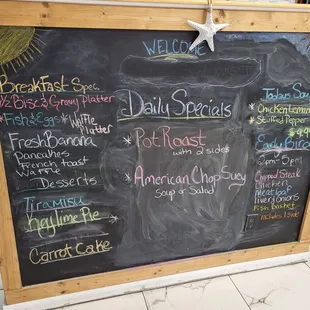 WELCOME
BreakFast Spec.
½ Bisc & Gravy Platter
*Fish & Eggs
*Waffle Platter
Fresh Banana
Pancakes
French Toast
Waffle
Desserts
Tiramisu
Key lime Pie
Carrot Cake
Daily Specials
*Pot Roast
with 2 sides
*American Chop Suey
Soup or Salad
Todays Sou
*Chicken Lemon
*Stuffed Pepper
Early Bird
5pm
Chopped Steak
Chicken
Meatloaf
Liver & Onions
Fish Basket
Includes 1 Side